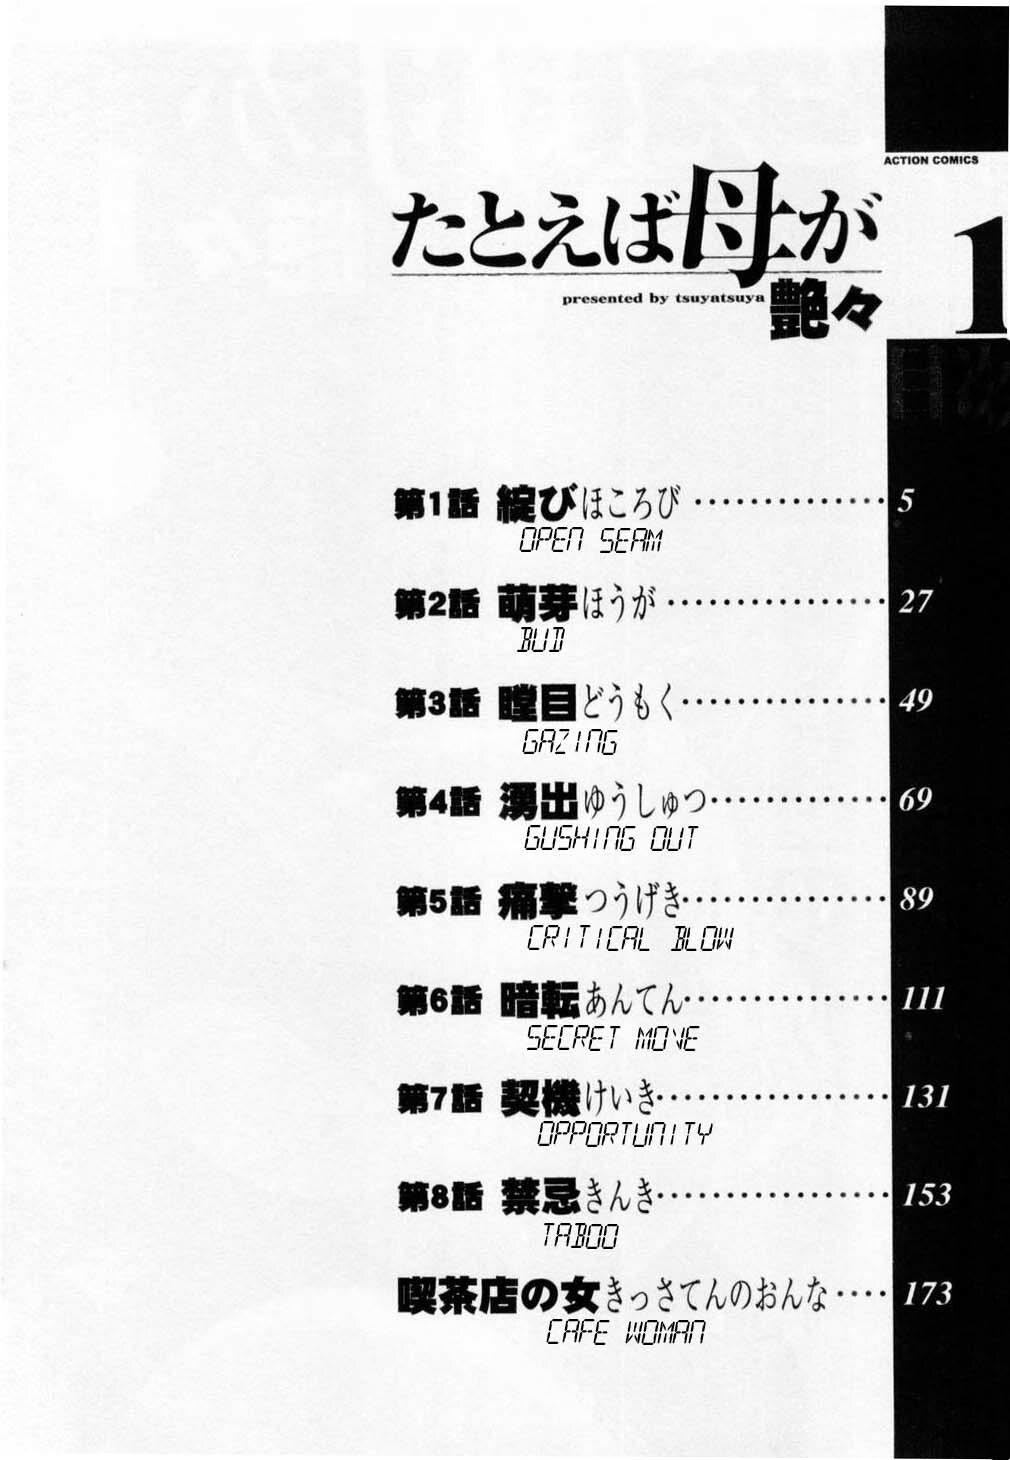 ACTION COMICS
たとえば母が
1
presented by tsuyatsuya 艶々
目次
第1話 綻び ほころび ・・・・・・・・・・・・・・ 5
OPEN SEAM
第2話 萌芽 ほうが ・・・・・・・・・・・・・・・・ 27
BUD
第3話 瞠目 どうもく ・・・・・・・・・・・・・・・ 49
GAZING
第4話 湧出 ゆうしゅつ ・・・・・・・・・・・・・ 69
GUSHING OUT
第5話 痛撃 つうげき ・・・・・・・・・・・・・・・ 89
CRITICAL BLOW
第6話 暗転 あんてん ・・・・・・・・・・・・・・・ 111
SECRET MOVE
第7話 契機 けいき ・・・・・・・・・・・・・・・・・ 131
OPPORTUNITY
第8話 禁忌 きんき ・・・・・・・・・・・・・・・・・ 153
TABOO
喫茶店の女 きっさてんのおんな ・・・・ 173
CAFE WOMAN